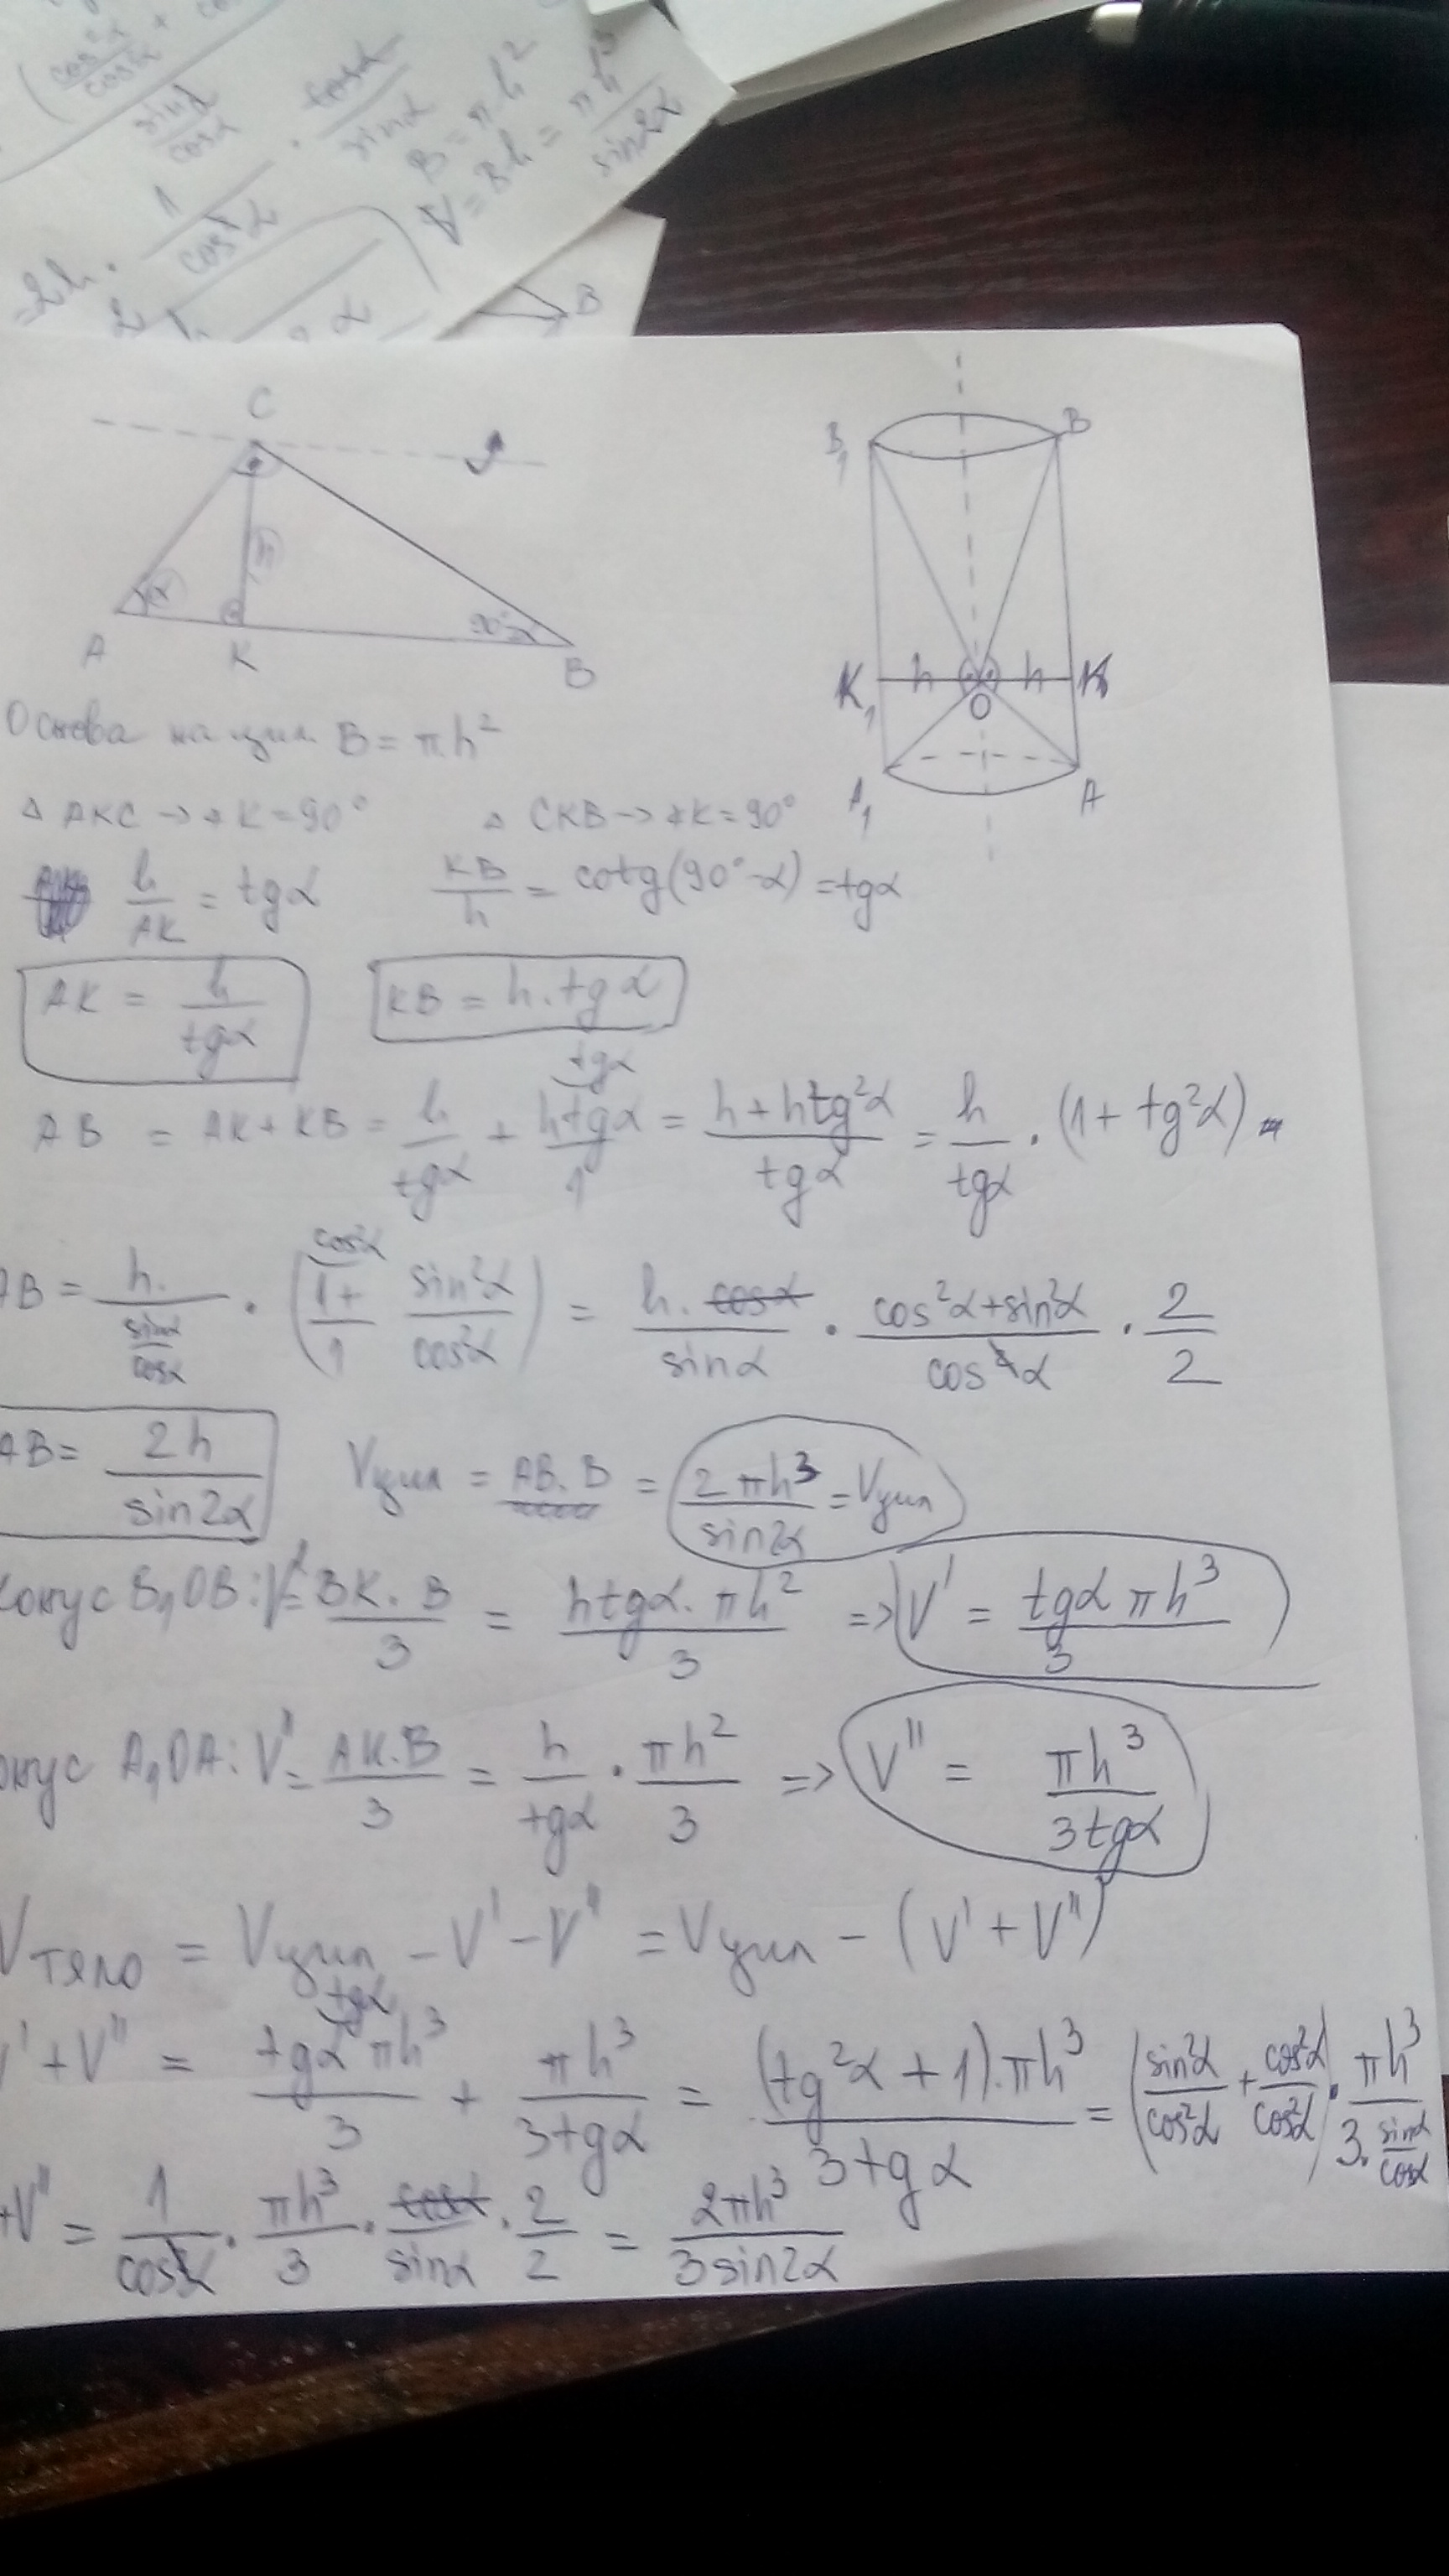 cos²α / cosα
sinα / cosα
1 / cos²α · cosα / sinα
= 2h ·
B = π.h²
V = B.h = πh³ / sin2α
B
C
A K B
α h 90°-α
B₁ B
K₁ h h K
O
A₁ A
Основа на цил. B = π.h²
△ AKC → ∢K = 90° △ CKB → ∢K = 90°
h / AK = tgα KB / h = cotg(90°-α) = tgα
AK = h / tgα KB = h.tgα
AB = AK + KB = h / tgα + htgα / 1 = (h + htg²α) / tgα = h / tgα · (1 + tg²α)
AB = h. / (sinα / cosα) · (1 / 1 + sin²α / cos²α) = h.cosα / sinα · (cos²α + sin²α) / cos²α · 2 / 2
AB = 2h / sin2α Vцил = AB.B = 2πh³ / sin2α = Vцил
конус B₁OB: V' = BK.B / 3 = htgα.πh² / 3 => V' = tgα πh³ / 3
онус A₁OA: V'' = AK.B / 3 = h / tgα · πh² / 3 => V'' = πh³ / 3tgα
Vтяло = Vцил - V' - V'' = Vцил - (V' + V'')
V' + V'' = tgα πh³ / 3 + πh³ / 3tgα = (tg²α + 1).πh³ / 3tgα = (sin²α / cos²α + cos²α / cos²α) · πh³ / (3. sinα / cosα)
+V'' = 1 / cos²α · πh³ / 3 · cosα / sinα · 2 / 2 = 2πh³ / 3sin2α